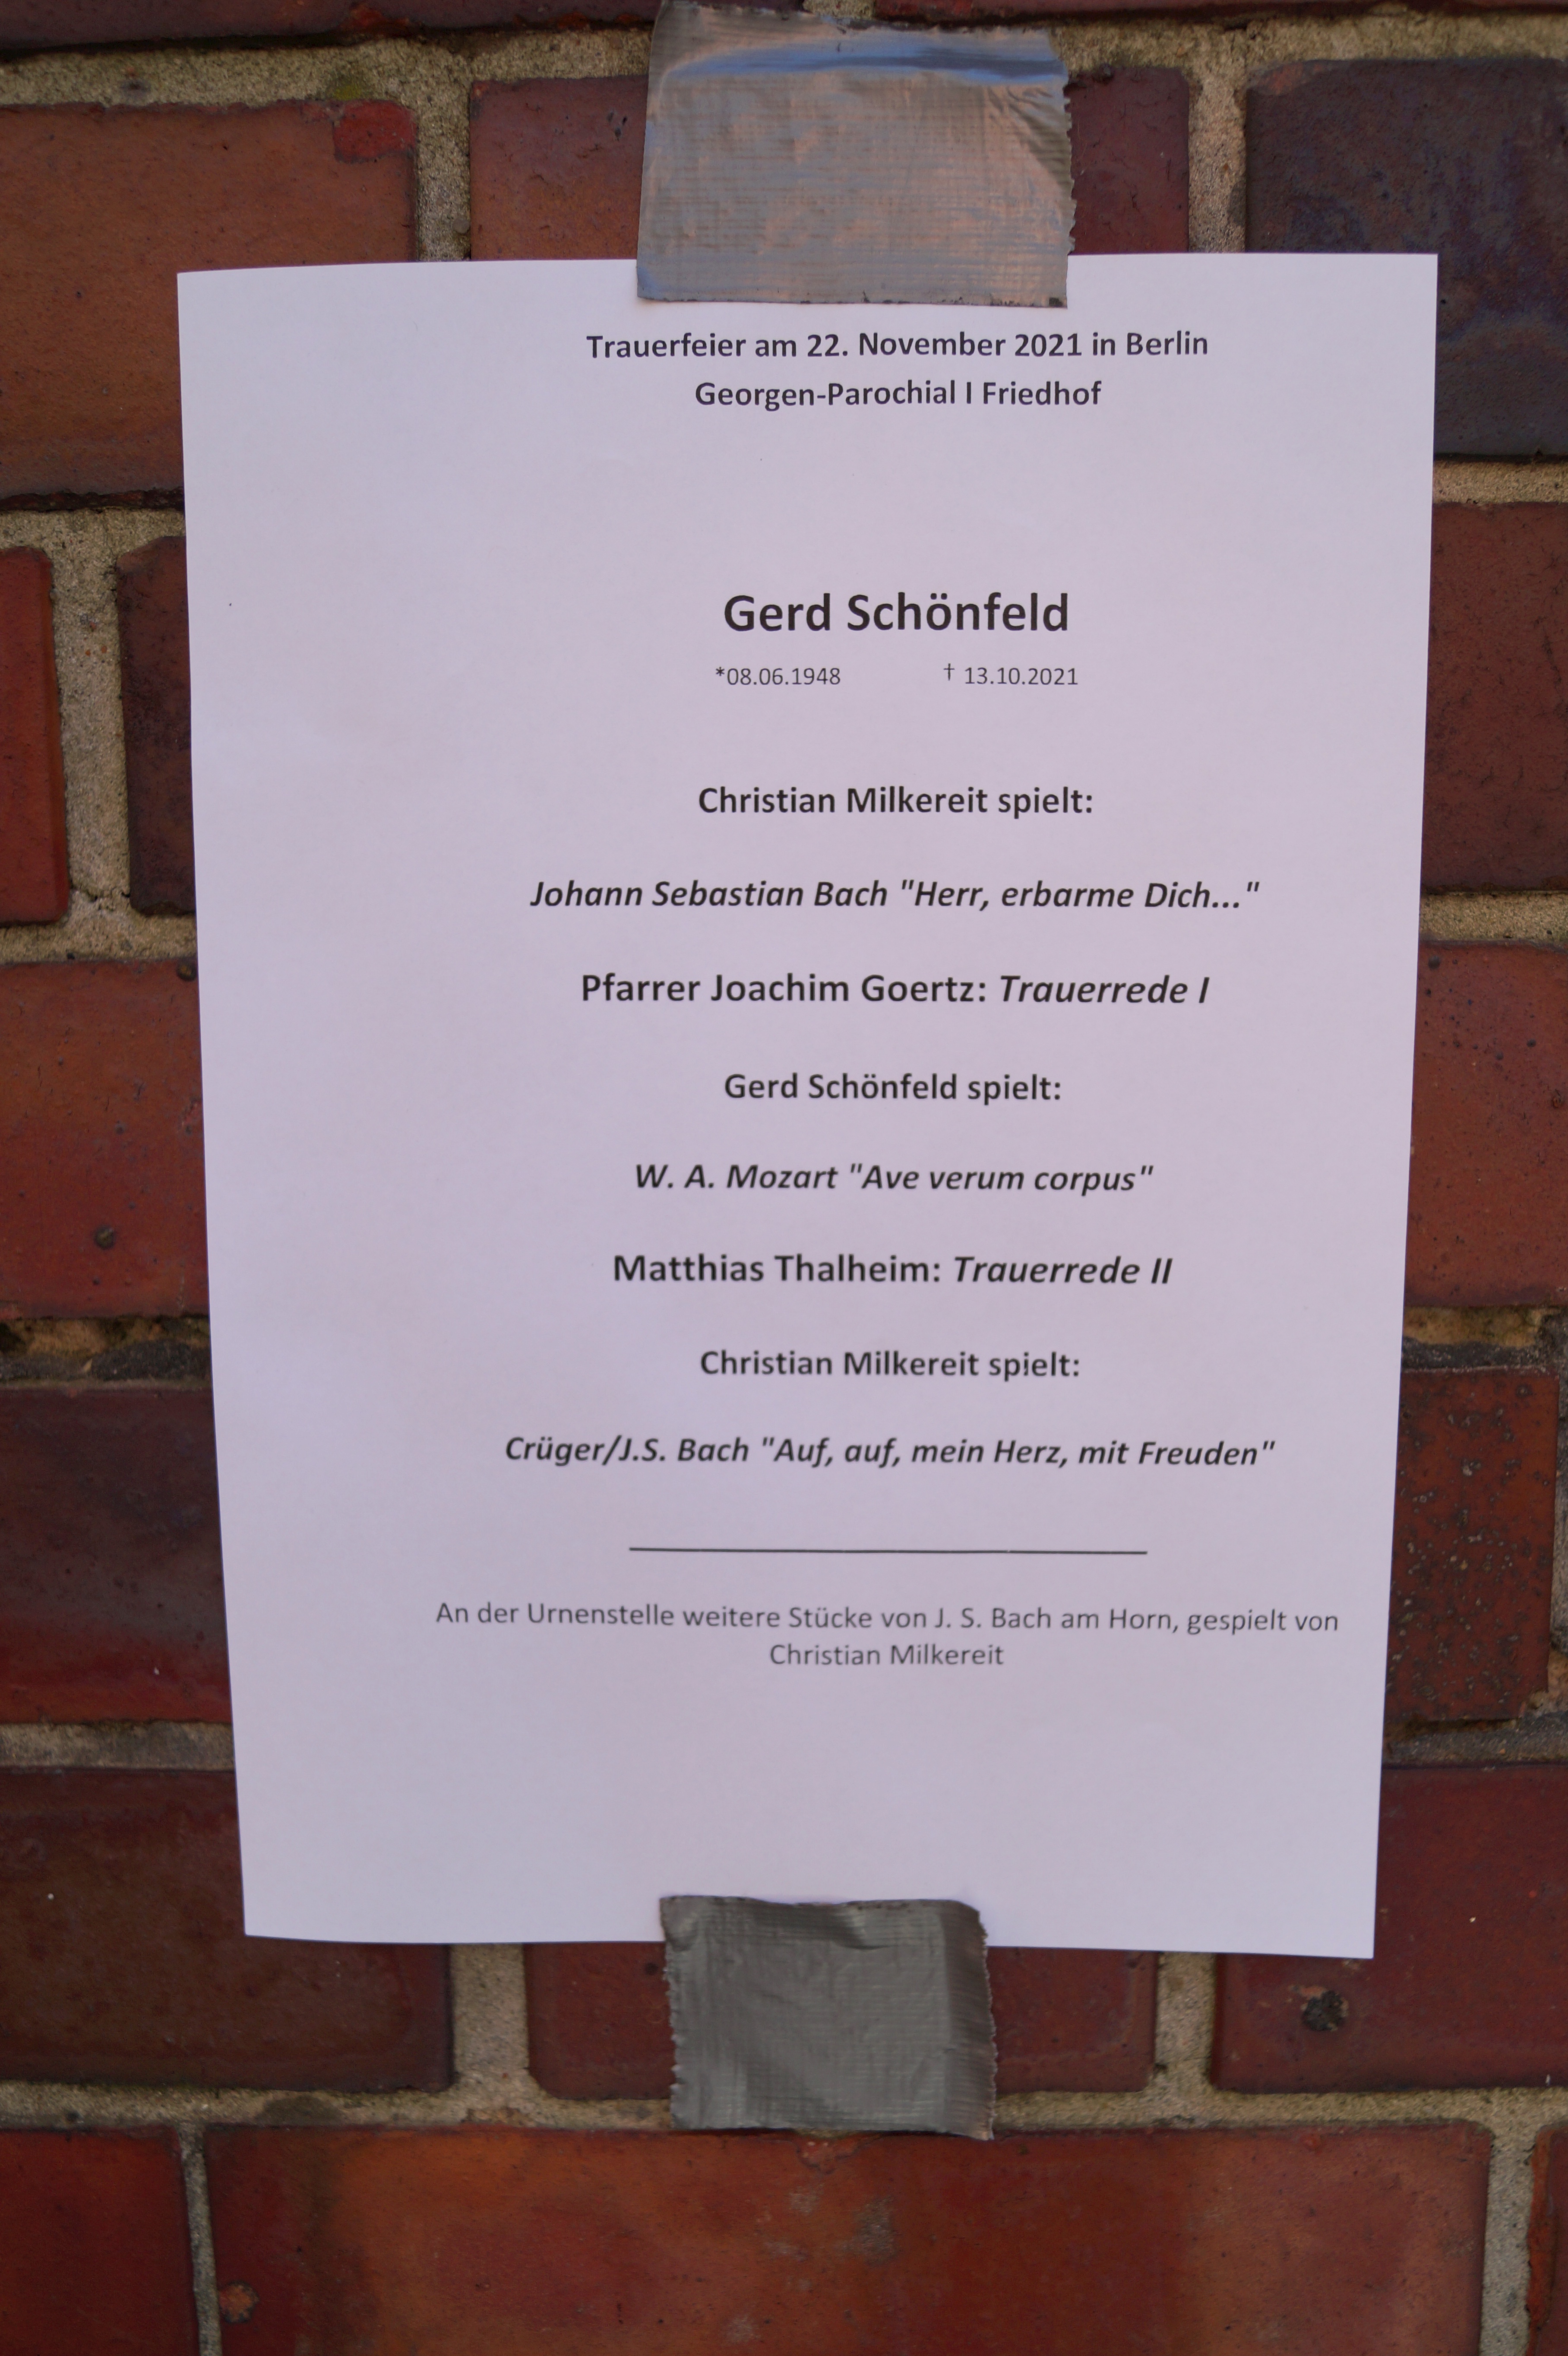 Trauerfeier am 22. November 2021 in Berlin
Georgen-Parochial I Friedhof
Gerd Schönfeld
*08.06.1948 † 13.10.2021
Christian Milkereit spielt:
Johann Sebastian Bach "Herr, erbarme Dich..."
Pfarrer Joachim Goertz: Trauerrede I
Gerd Schönfeld spielt:
W. A. Mozart "Ave verum corpus"
Matthias Thalheim: Trauerrede II
Christian Milkereit spielt:
Crüger/J.S. Bach "Auf, auf, mein Herz, mit Freuden"
An der Urnenstelle weitere Stücke von J. S. Bach am Horn, gespielt von
Christian Milkereit